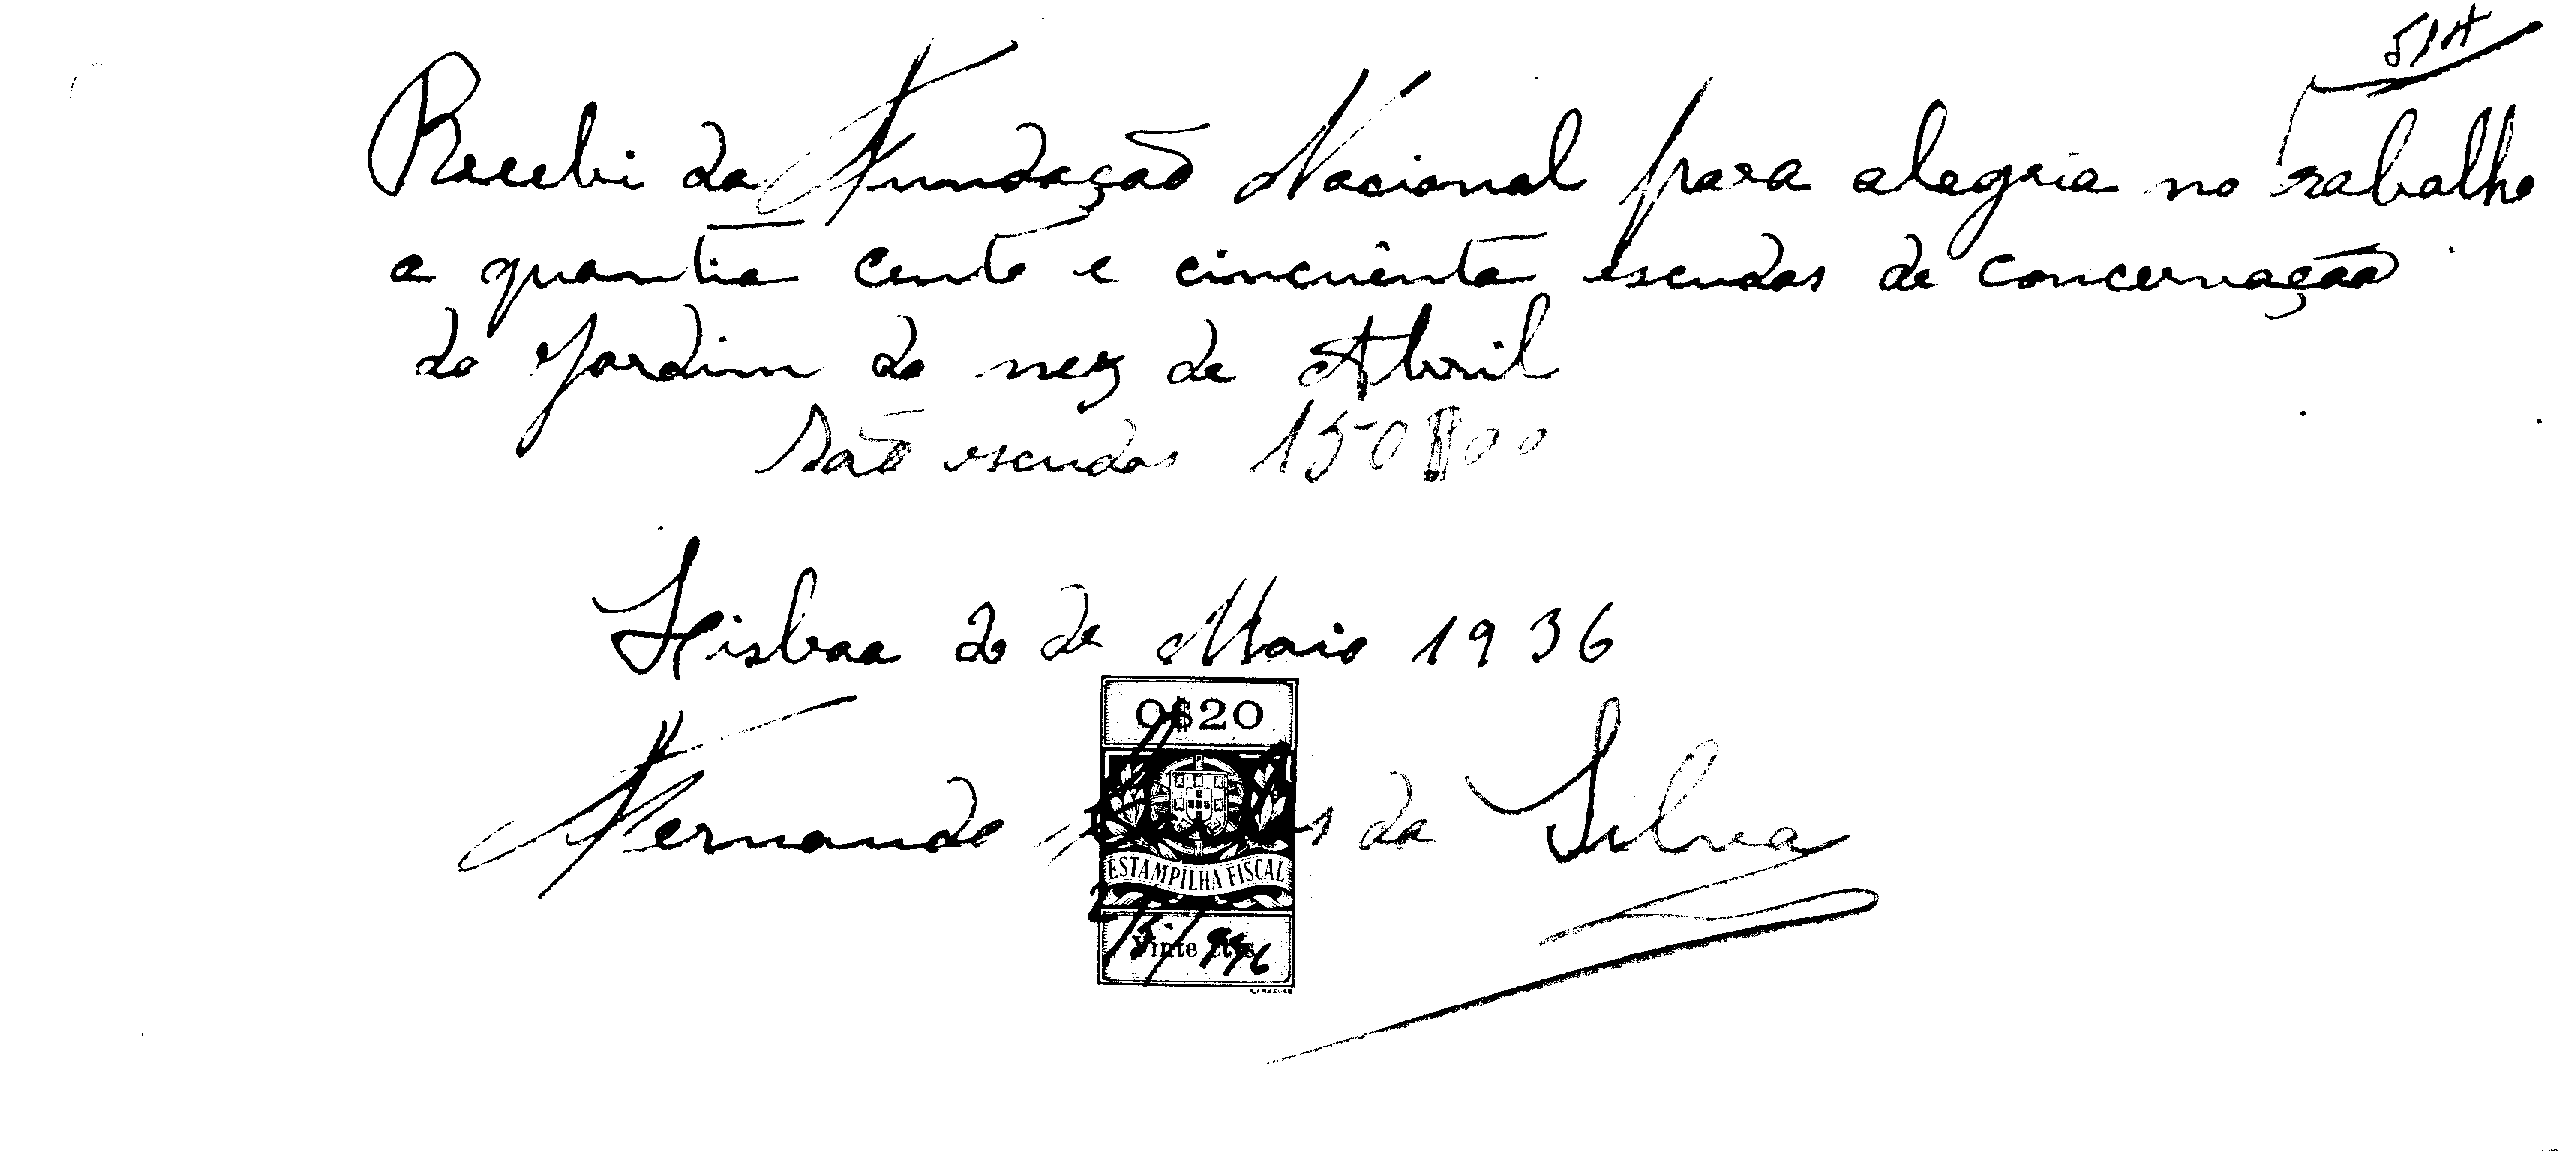 51A
Recebi da Fundação Nacional para alegria no Trabalho
a quantia cento e cincuênta escudos de concervação
do Jardim do mez de Abril
São escudos 150$00
Lisboa 2 de Maio 1936
0$20
Fernando da Silva
ESTAMPILHA FISCAL
2/5/936
Vinte